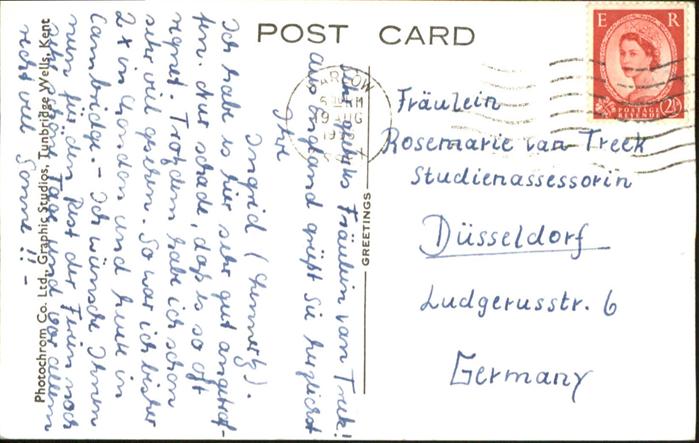 POST CARD
Sehr geehrtes Fräulein van Treek!
Aus England grüßt Sie herzlichst
Ihre
Ingrid
Ich habe es hier sehr gut angetrof-
fen. Nur schade, daß es so oft
regnet. Trotzdem habe ich schon
sehr viel gesehen. So war ich bisher
2x in London und heute in
Cambridge. - Ich wünsche Ihnen
nun für den Rest der Ferien noch
schöne Tage und vor allem
recht viel Sonne!! -
Photochrom Co. Ltd., Graphic Studios, Tunbridge Wells, Kent
GREETINGS
E R
POSTAGE
REVENUE
2½D
Fräulein
Rosemarie van Treek
Studienassessorin
Düsseldorf
Ludgerusstr. 6
Germany